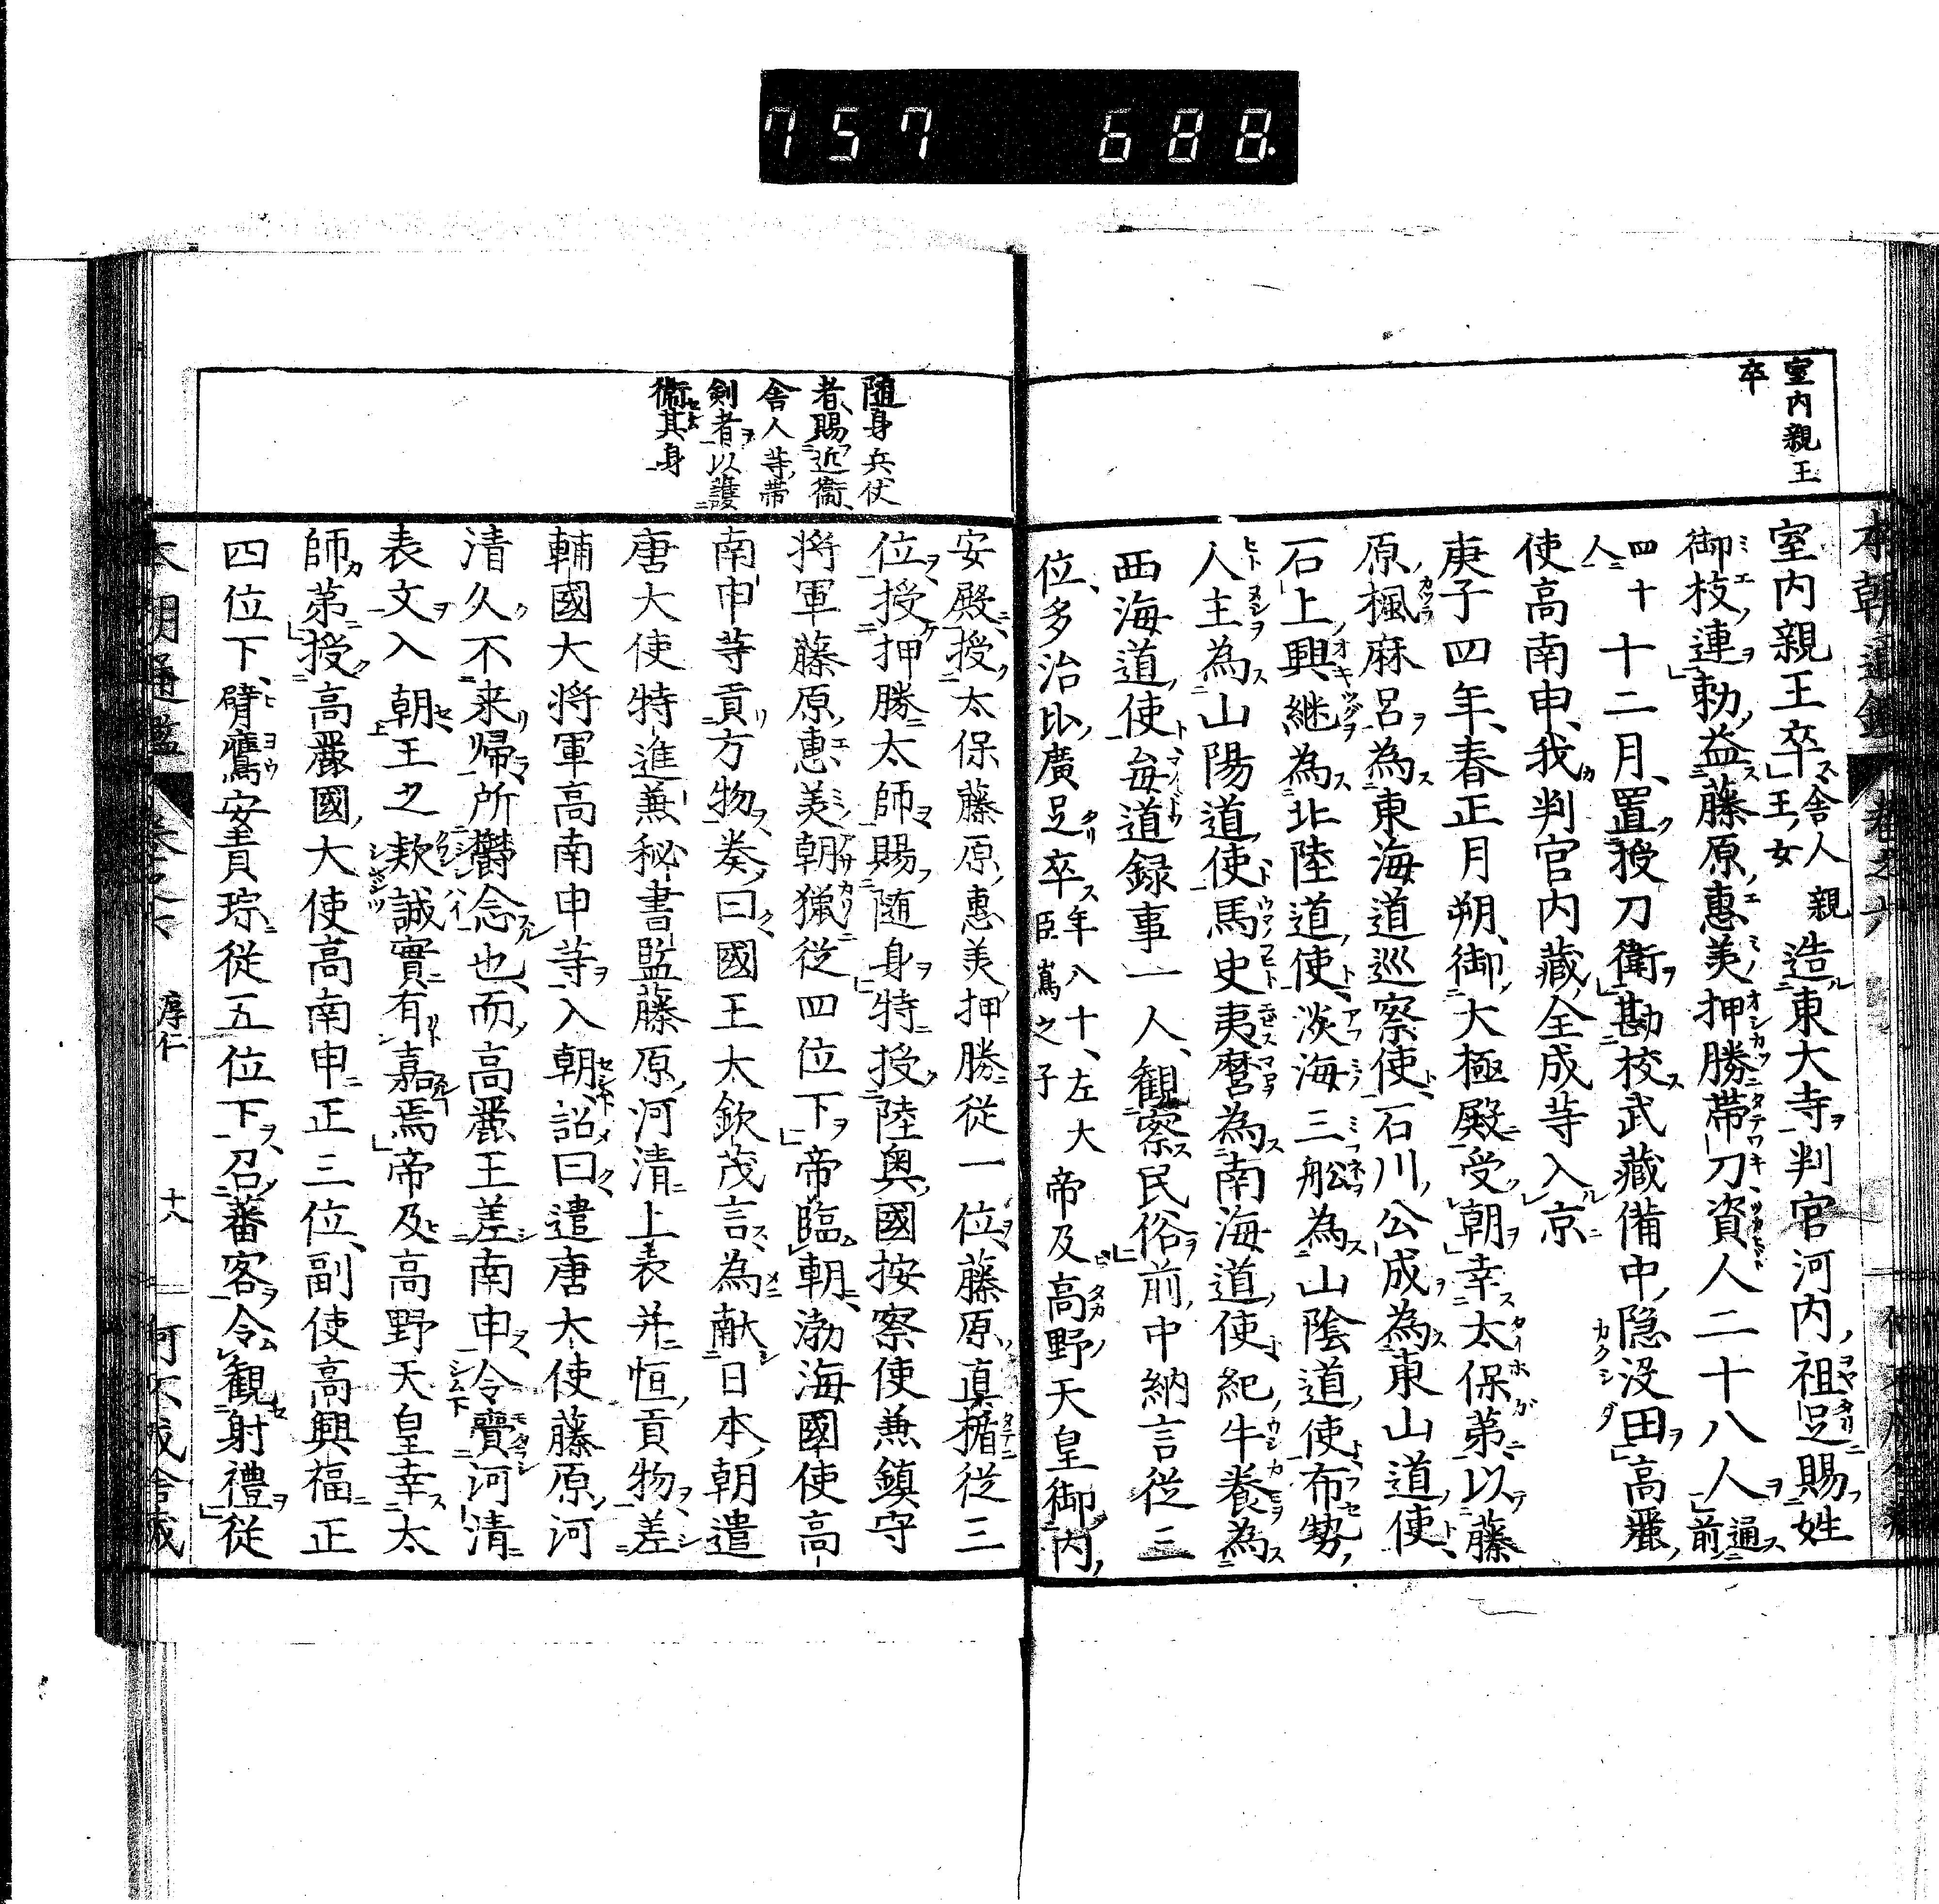 757 688
室内親王
卒
室内親王卒舎人親王女造東大寺判官河内祖足賜姓
御枝連勅益藤原惠美押勝帯刀資人二十八人前通
四十人十二月置授刀衛勘校武藏備中隠没田高麗
使高南申我判官内藏全成等入京
庚子四年春正月朔御大極殿受朝幸太保第以藤
原楓麻呂為東海道巡察使石川公成為東山道使
石上興継為北陸道使淡海三船為山陰道使布勢
人主為山陽道使馬史夷麿為南海道使紀牛養為
西海道使毎道録事一人觀察民俗前中納言從三
位多治比廣足卒年八十左大臣嶌之子帝及高野天皇御内
随身兵仗
者賜近衞
舎人等帯
剣者以護
衞其身
安殿授太保藤原惠美押勝從一位藤原真楯從三
位授押勝太師賜随身特授陸奥國按察使兼鎮守
將軍藤原惠美朝獵從四位下帝臨朝渤海國使高
南申等貢方物奏曰國王大欽茂言為献日本朝遣
唐大使特進兼秘書監藤原河清上表并恒貢物差
輔國大将軍高南申等入朝詔曰遣唐大使藤原河
清久不来帰所欝念也而高麗王差南申令賷河清
表文入朝王之欵誠實有嘉焉帝及高野天皇幸太
師第授高麗國大使高南申正三位副使高興福正
四位下臂鷹安貴琮從五位下召蕃客令觀射禮從
淳仁 十八